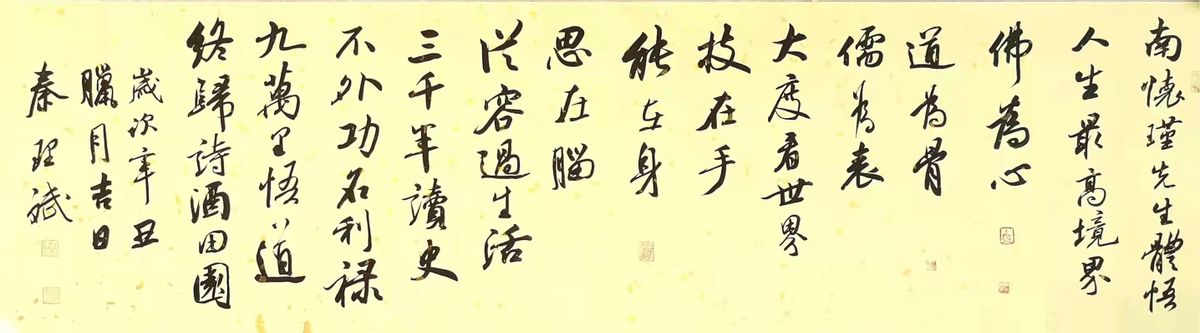 南懷瑾先生體悟
人生最高境界
佛為心
道為骨
儒為表
大度看世界
技在手
能在身
思在腦
從容過生活
三千年讀史
不外功名利祿
九萬里悟道
終歸詩酒田園
歲次辛丑
臘月吉日
秦理斌